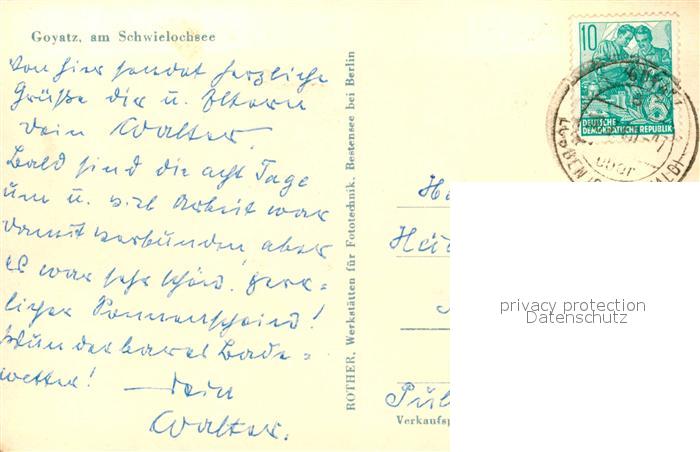 Goyatz, am Schwielochsee
Von hier sendet herzliche
Grüße dir u. Eltern
Dein Walter.
Bald sind die acht Tage
um u. viel Arbeit war
damit verbunden, aber
es war sehr schön. Herr-
licher Sonnenschein!
Wunderbares Bade-
wetter! – Dein
Walter.
ROTHER, Werkstätten für Fototechnik, Bestensee bei Berlin
10
DEUTSCHE
DEMOKRATISCHE REPUBLIK
über
Verkaufsp
privacy protection
Datenschutz